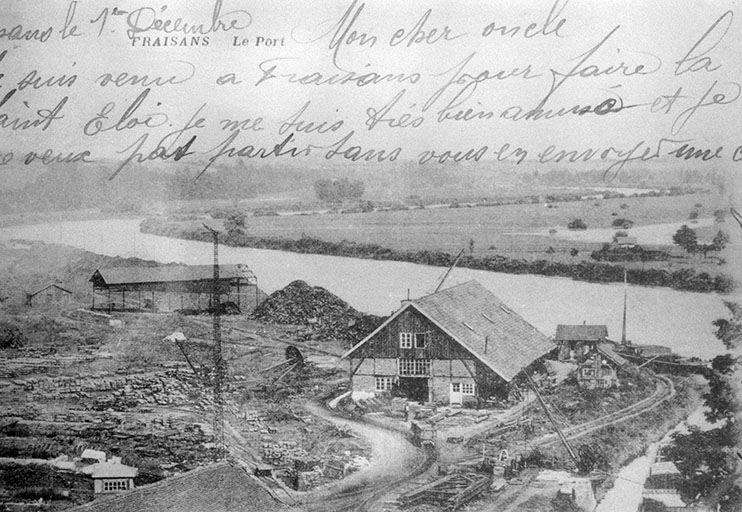 sans le 1er Décembre Mon cher oncle
FRAISANS Le Port
suis venu a Fraisans pour faire la
aint Eloi. je me suis très bien amusé et je
e veux pas partir sans vous en envoyer une c